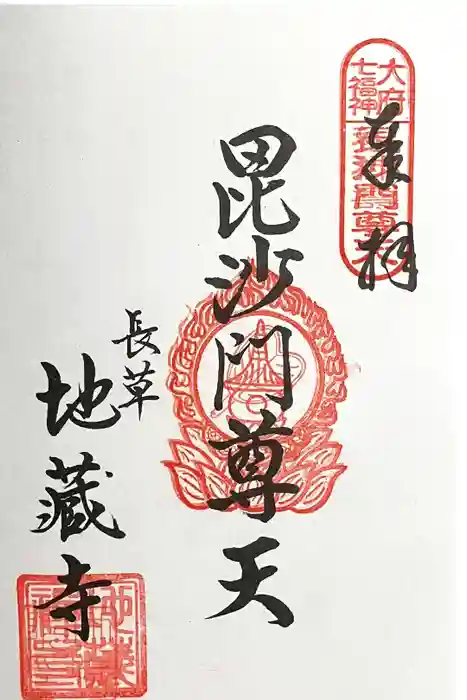 奉拝
大府七福神
毘沙門尊天
毘沙門尊天
長草
地蔵寺